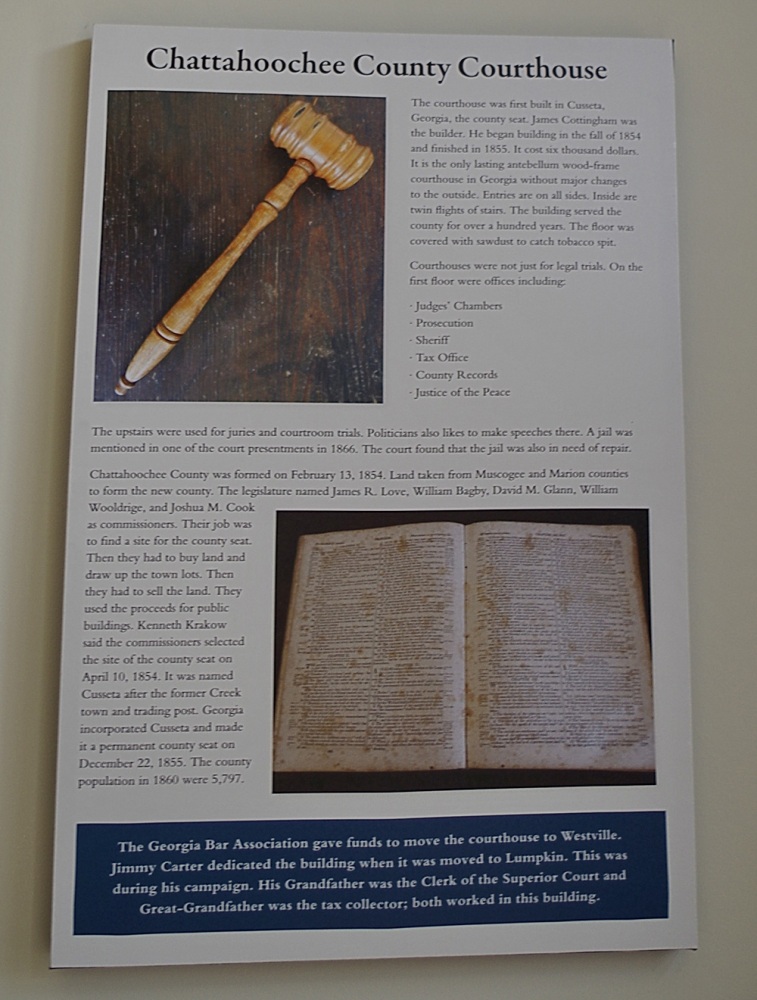 Chattahoochee County Courthouse
The courthouse was first built in Cusseta,
Georgia, the county seat. James Cottingham was
the builder. He began building in the fall of 1854
and finished in 1855. It cost six thousand dollars.
It is the only lasting antebellum wood-frame
courthouse in Georgia without major changes
to the outside. Entries are on all sides. Inside are
twin flights of stairs. The building served the
county for over a hundred years. The floor was
covered with sawdust to catch tobacco spit.
Courthouses were not just for legal trials. On the
first floor were offices including:
· Judges' Chambers
· Prosecution
· Sheriff
· Tax Office
· County Records
· Justice of the Peace
The upstairs were used for juries and courtroom trials. Politicians also likes to make speeches there. A jail was
mentioned in one of the court presentments in 1866. The court found that the jail was also in need of repair.
Chattahoochee County was formed on February 13, 1854. Land taken from Muscogee and Marion counties
to form the new county. The legislature named James R. Love, William Bagby, David M. Glann, William
Wooldrige, and Joshua M. Cook
as commissioners. Their job was
to find a site for the county seat.
Then they had to buy land and
draw up the town lots. Then
they had to sell the land. They
used the proceeds for public
buildings. Kenneth Krakow
said the commissioners selected
the site of the county seat on
April 10, 1854. It was named
Cusseta after the former Creek
town and trading post. Georgia
incorporated Cusseta and made
it a permanent county seat on
December 22, 1855. The county
population in 1860 were 5,797.
The Georgia Bar Association gave funds to move the courthouse to Westville.
Jimmy Carter dedicated the building when it was moved to Lumpkin. This was
during his campaign. His Grandfather was the Clerk of the Superior Court and
Great-Grandfather was the tax collector; both worked in this building.